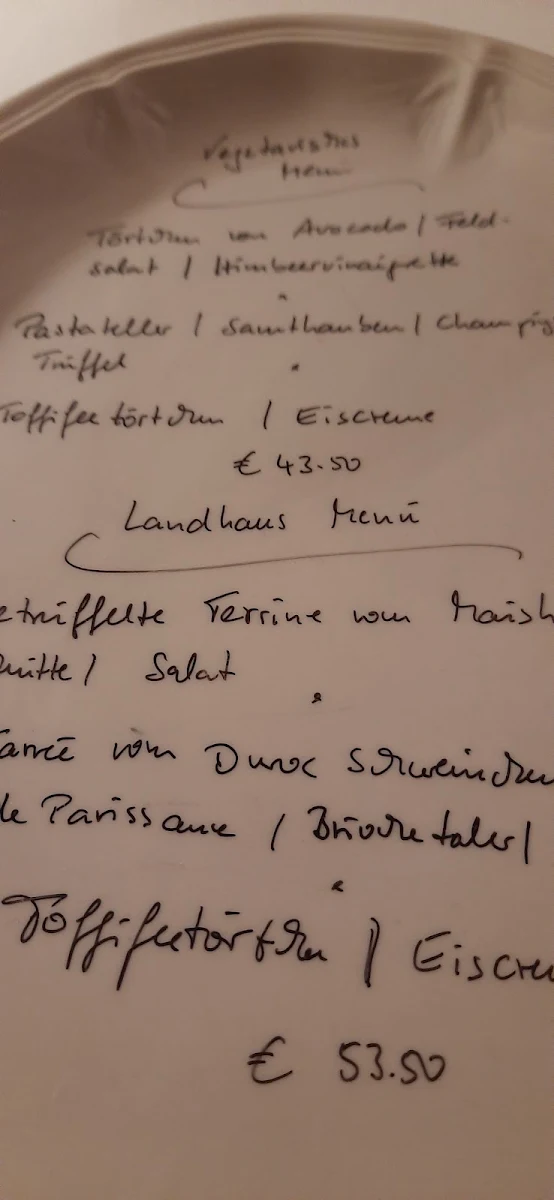 Vegetarisches
Menü
Törtchen von Avocado / Feld-
salat / Himbeervinaigrette
Pastateller / Samthauben / Champig
Trüffel
Toffifeetörtchen / Eiscreme
€ 43.50
Landhaus Menü
etrüffelte Terrine vom Maish
uitte / Salat
arrée vom Duroc Schweinchen
le Parissauce / Briochetaler /
Toffifeetörtchen / Eiscre
€ 53.50